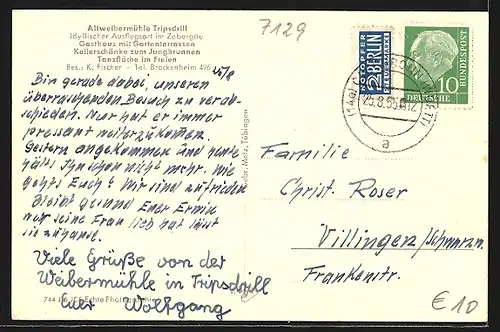 Altweibermühle Tripsdrill
Idyllischer Ausflugsort im Zabergäu
Gasthaus mit Gartenterrassen
Kellerschänke zum Jungbrunnen
Tanzfläche im Freien
Bes.: K. Fischer - Tel. Brackenheim 496
7129
Bin gerade dabei, unseren
überraschenden Besuch zu verab-
schieden. Nur hat er immer
pressant weiterzukommen.
Gestern angekommen und heute
hält's ihn schon nicht mehr. Wie
geht's Euch? Wir sind zufrieden
Bleibt gesund Euer Erwin
seine Frau lieb hat
sie zuhause.
Viele Grüße von der
Weibermühle in Tripsdrill
Euer Wolfgang
744 Echte Photographie
Gebr. Metz, Tübingen
NOTOPFER
2 BERLIN
STEUERMARKE
DEUTSCHE
BUNDESPOST
10
(14a)
25.8.55
a
Familie
Christ. Roser
Villingen/Schwarzw.
Frankenstr.
€10